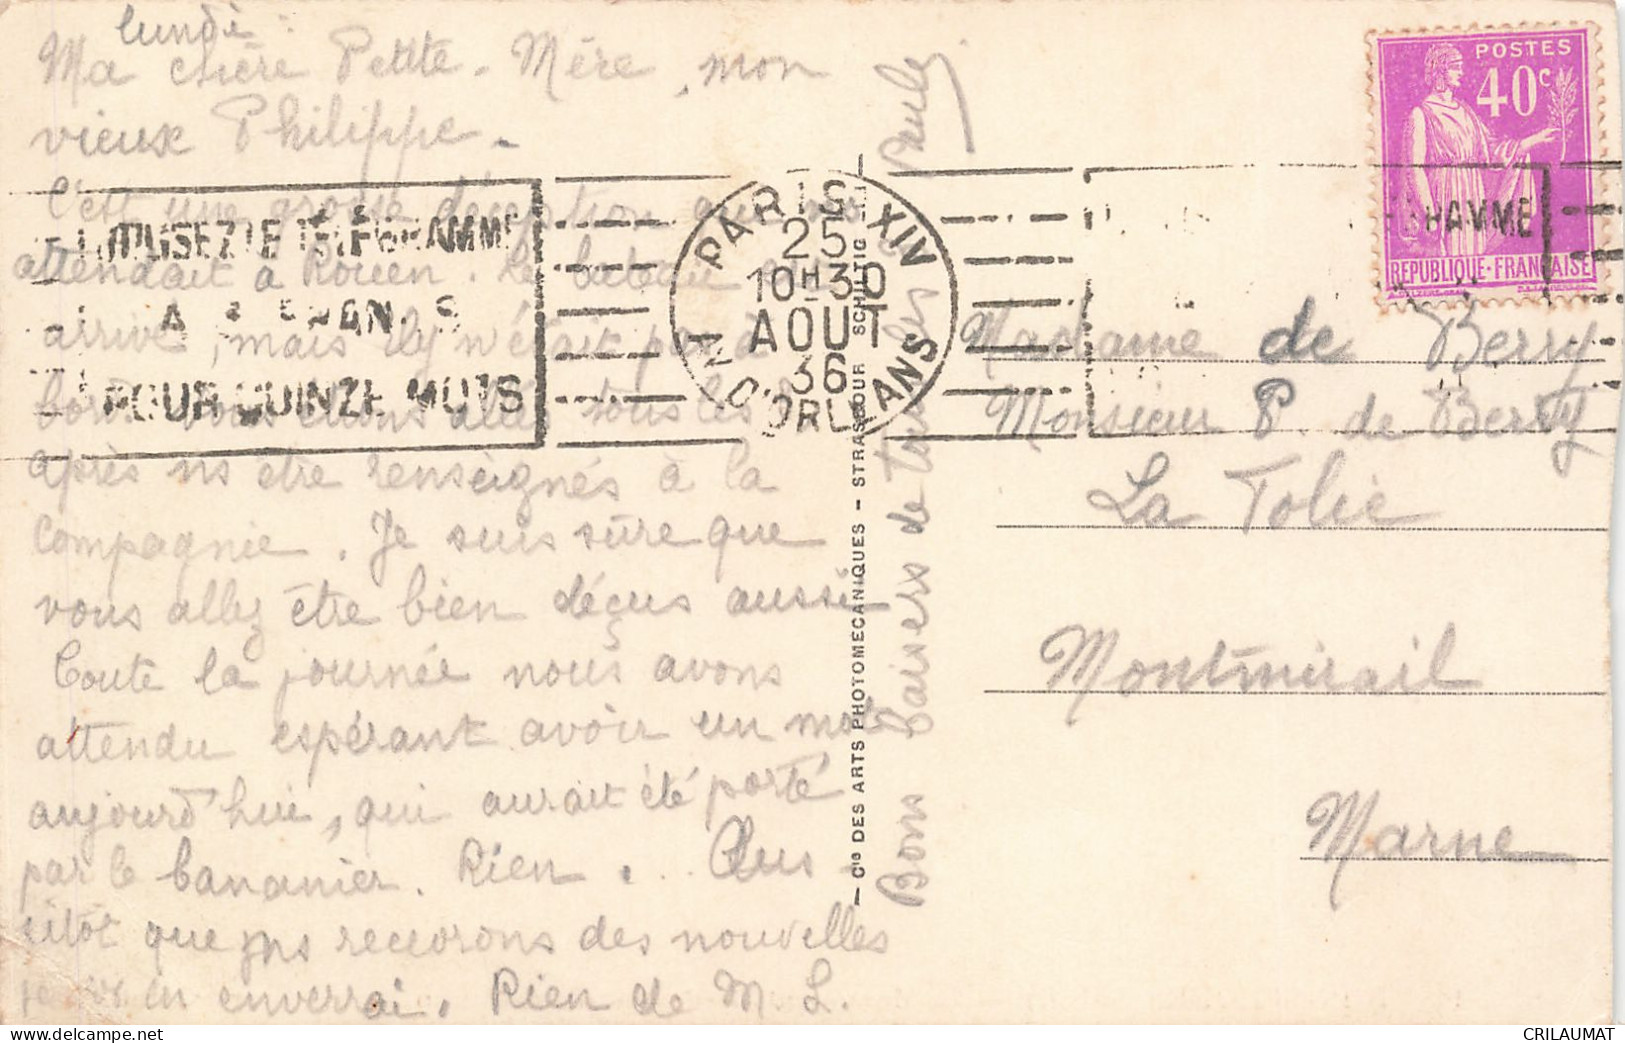 lundi.
Ma chère Petite-Mère, mon
vieux Philippe.
C'est une grosse déception qui
attendait à Rouen. Le bateau
arrive, mais il n'était pas à
bord. allés sous les
après ns être renseignés à la
Compagnie. Je suis sûre que
vous allez être bien déçus aussi
Toute la journée nous avons
attendu espérant avoir un mot
aujourd'hui, qui aurait été porté
par le bananier. Rien... Aus-
sitôt que ns recevrons des nouvelles
je vs en enverrai. Rien de M. L.
Bons baisers de tous les
UTILISEZ LE TÉLÉGRAMME
A FRANCS
POUR QUINZE MOTS
PARIS XIV
25
10H30
AOUT
36
AV. D'ORLEANS
— Cie DES ARTS PHOTOMECANIQUES - STRASBOUR SCHILTIG
POSTES
40c
REPUBLIQUE-FRANÇAISE
Madame de Berry
Monsieur P. de Berry
La Tolie
Montmirail
Marne
CRILAUMAT